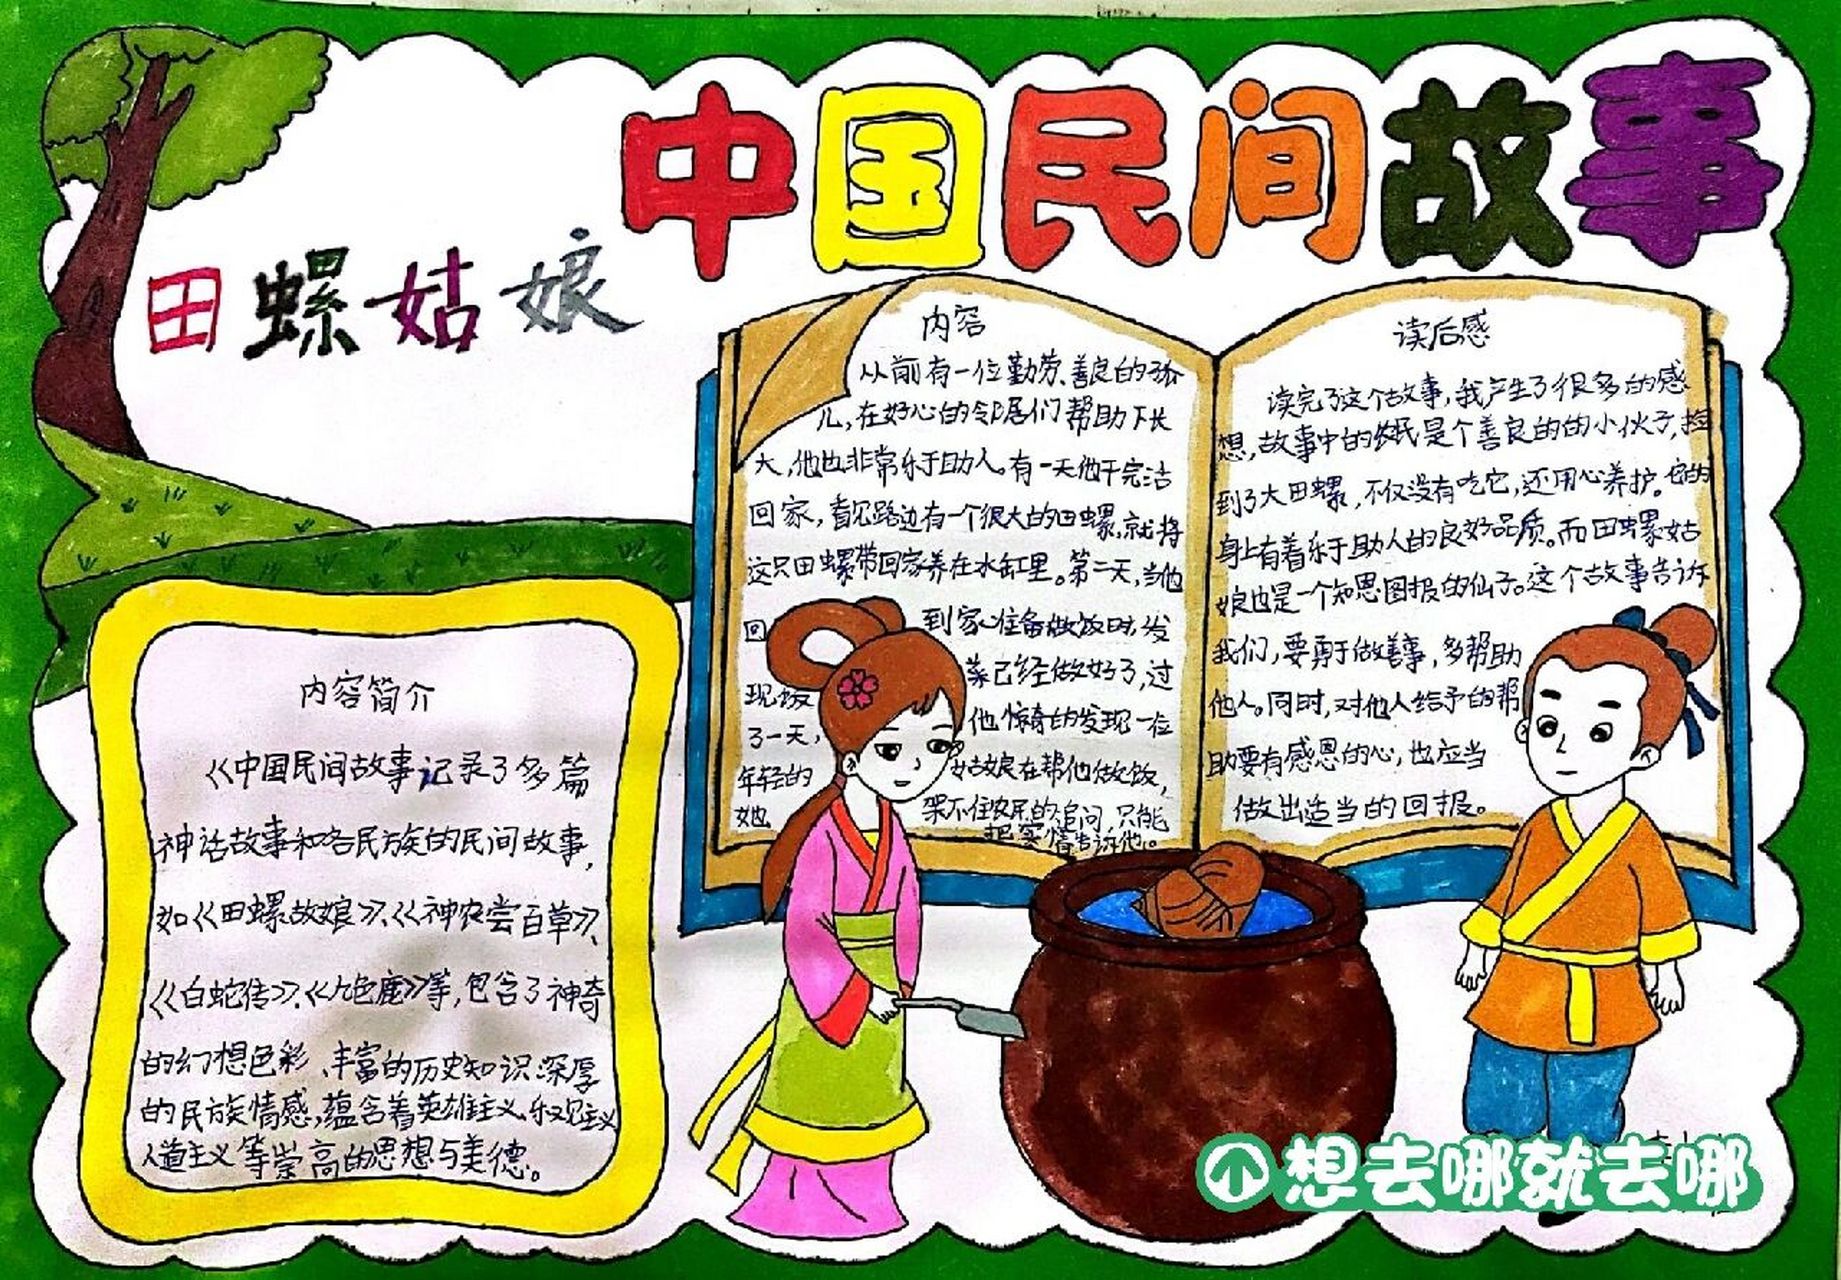 中国民间故事
田螺姑娘
内容
从前有一位勤劳、善良的孤
儿,在好心的邻居们帮助下长
大,他也非常乐于助人。有一天他干完活
回家,看见路边有一个很大的田螺,就将
这只田螺带回家养在水缸里。第二天,当他
回到家准备做饭时,发
现饭菜已经做好了,过
了一天,他惊奇的发现一位
年轻的姑娘在帮他做饭,
她架不住农民的追问,只能
把实情告诉他。
读后感
读完了这个故事,我产生了很多的感
想,故事中的农民是个善良的的小伙子,捡
到了大田螺,不仅没有吃它,还用心养护。他的
身上有着乐于助人的良好品质。而田螺姑
娘也是一个知恩图报的仙子。这个故事告诉
我们,要勇于做善事,多帮助
他人。同时,对他人给予的帮
助要有感恩的心,也应当
做出适当的回报。
内容简介
《中国民间故事记录了多篇
神话故事和各民族的民间故事,
如《田螺故娘》、《神农尝百草》、
《白蛇传》、《九色鹿》等,包含了神奇
的幻想色彩、丰富的历史知识深厚
的民族情感,蕴含着英雄主义、乐观主义
人道主义等崇高的思想与美德。
想去哪就去哪